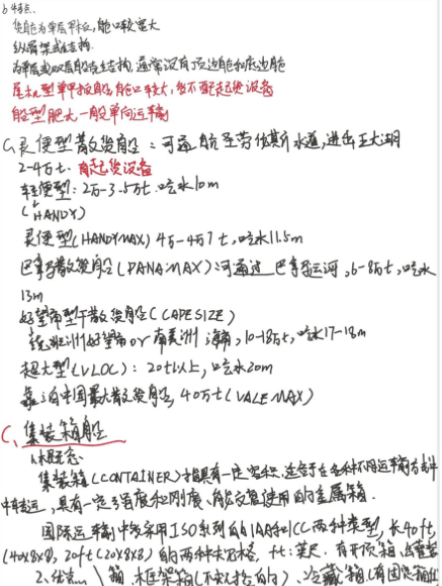 b 特点.
货舱为单层甲板,舱口较宽大
纵骨架式结构.
为单层或双层船壳结构,通常设有顶边舱和底边舱
尾机型单甲板船,舱口较大,货不配起货设备
船型肥大,一般单向运输
G.灵便型散货船:可通航圣劳伦斯水道,进出五大湖
2-4万t.有起货设备
轻便型:2万-3.5万t.吃水10m
(HANDY)
灵便型(HANDYMAX)4万-4万7t,吃水11.5m
巴拿马散货船(PANAMAX):可通过巴拿马运河,6-8万t,吃水
13m
好望角型干散货船(CAPESIZE)
绕非洲好望角or南美洲海角,10-18万t,吃水17-18m
超大型(VLOC):20t以上,吃水20m
中国最大散货船,40万t(VALEMAX)
C、集装箱船
1.概念:
集装箱(CONTAINER)指具有一定容积,适合于在各种不同运输方式中
中转运,具有一定强度和刚度、能反复使用的金属箱.
国际运输中多采用ISO系列的1AA和1CC两种类型,长40ft,
(40x8x8),20ft(20x8x8)的两种规格,ft:英尺.有开顶箱、
2、 箱、框架箱 、冷藏箱